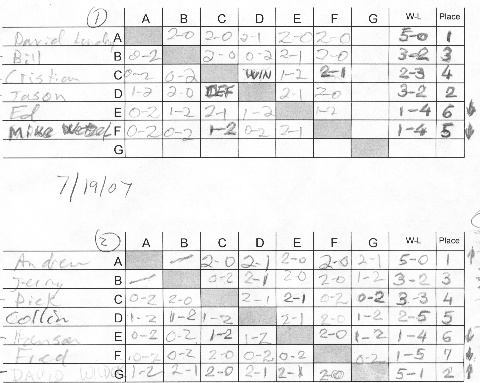 1 A B C D E F G W-L Place
David A 2-0 2-0 2-1 2-0 2-0 5-0 1
Bill B 0-2 2-0 0-2 2-1 2-0 3-2 3
Cristian C 0-2 0-2 WIN 1-2 2-1 2-3 4
Jason D 1-2 2-0 DEF 2-1 2-0 3-2 2
Ed E 0-2 1-2 2-1 1-2 1-2 1-4 6 ↓
Mike F 0-2 0-2 1-2 0-2 2-1 1-4 5 ↓
G
7/19/07
2 A B C D E F G W-L Place
Andrew A — 2-0 2-1 2-0 2-0 2-1 5-0 1 ↑
Jerry B — 0-2 2-1 2-0 2-0 1-2 3-2 3
Dick C 0-2 2-0 2-1 2-1 0-2 0-2 3-3 4
Collin D 1-2 1-2 1-2 2-1 2-0 1-2 2-5 5
E 0-2 0-2 1-2 1-2 2-0 1-2 1-4 6 ↓
Fred F 0-2 0-2 2-0 0-2 0-2 0-2 1-5 7 ↓
DAVID G 1-2 2-1 2-0 2-1 2-1 2-0 5-1 2 ↑